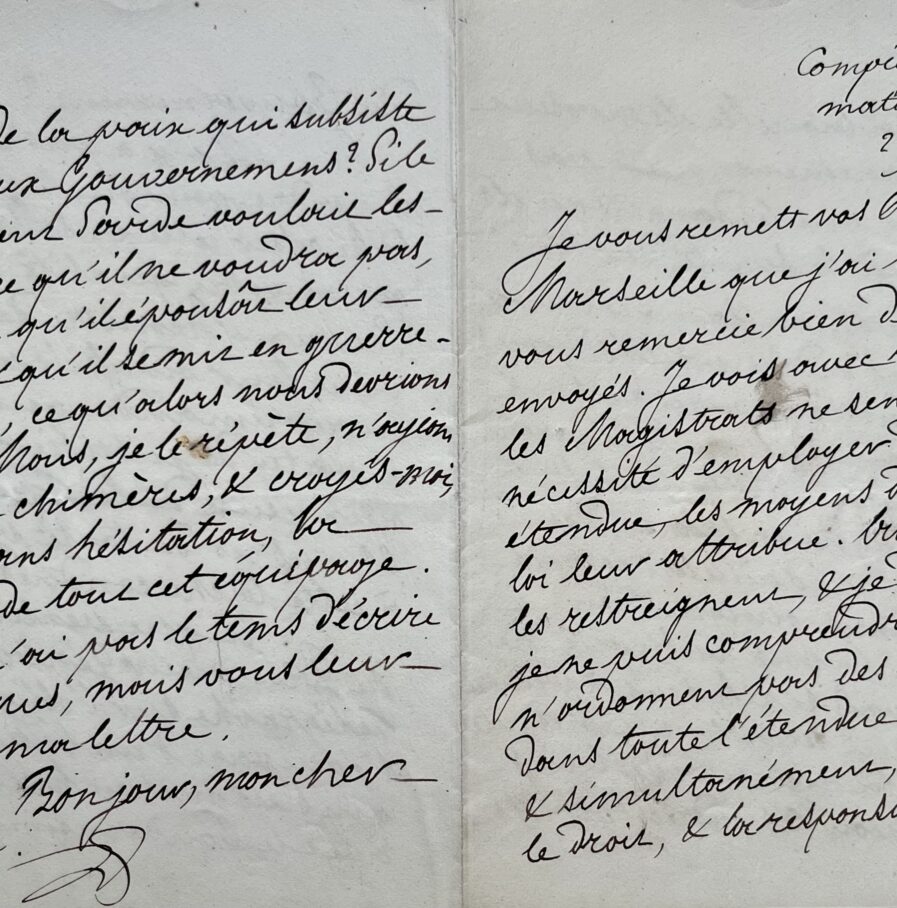 de la paix qui subsiste
Gouvernemens? Si le
Sarde vouloit les
ce qu'il ne voudra pas,
qu'il épousât leur
qu'il se mit en guerre
, ce qu'alors nous devrions
Mais, je le répète, n'ayions
chimères, & croyés-moi,
hésitation, la
de tout cet équipage.
pas le tems d'écrire
, mais vous leur
ma lettre.
Bonjour, mon cher
Je vous remett vos
Marseille que j'ai
vous remercie bien
envoyés. Je vois avec
les Magistrats ne
nécessité d'employer
étendue, les moyens
loi leur attribue.
les restreignent, & je
je ne puis
n'ordonnent pas des
dans toute l'étendue
& simultanément,
le droit, & la